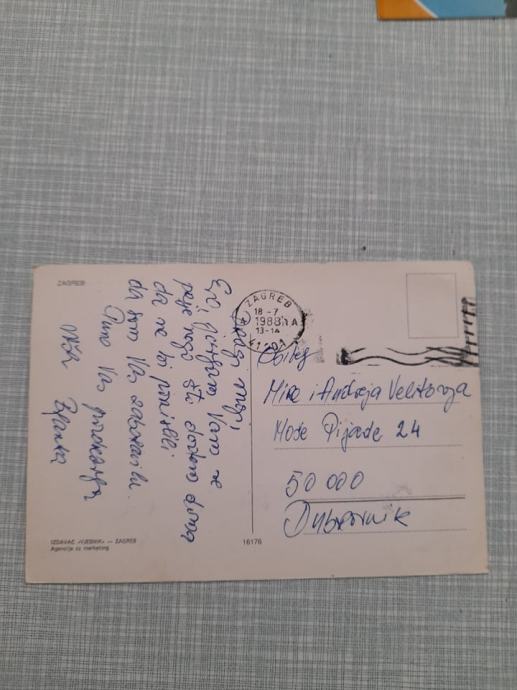 ZAGREB
Dragi moji,
Evo, javljamo Vam se
prije nego što dođemo doma
da ne bi pomislili
da smo Vas zaboravili.
Puno Vas pozdravlja
Vaša
ZAGREB
18-7
1988
13-14
Obitelj
Mire i Andrija
Moše Pijade 24
50 000
Dubrovnik
IZDAVAČ »VJESNIK« — ZAGREB
Agencija za marketing
16176